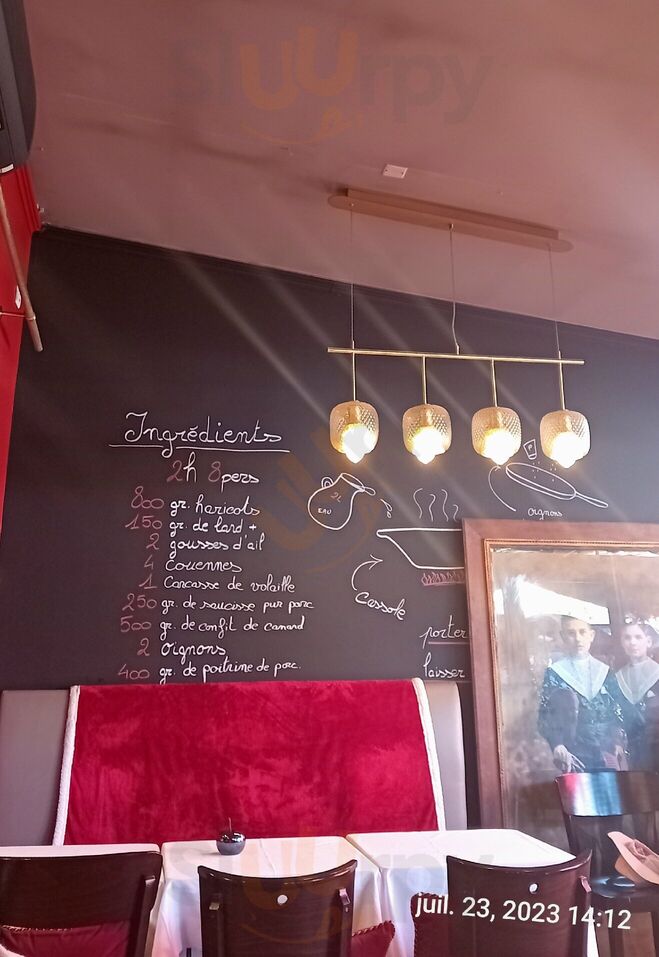 Sluurpy
Ingrédients
2h 8pers
800 gr. haricots
150 gr. de lard +
2 gousses d'ail
4 Couennes
1 Carcasse de volaille
250 gr. de saucisse pur porc
500 gr. de confit de canard
2 oignons
400 gr. de poitrine de porc.
2L
EAU
oignons
Cassole
porter
laisser
juil. 23, 2023 14:12